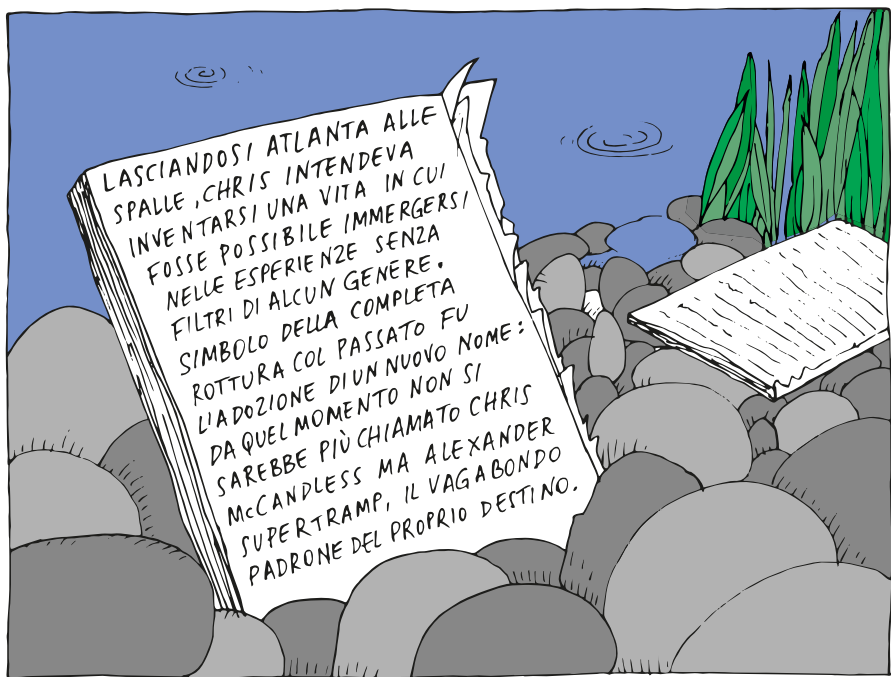 LASCIANDOSI ATLANTA ALLE
SPALLE, CHRIS INTENDEVA
INVENTARSI UNA VITA IN CUI
FOSSE POSSIBILE IMMERGERSI
NELLE ESPERIENZE SENZA
FILTRI DI ALCUN GENERE.
SIMBOLO DELLA COMPLETA
ROTTURA COL PASSATO FU
L'ADOZIONE DI UN NUOVO NOME:
DA QUEL MOMENTO NON SI
SAREBBE PIÙ CHIAMATO CHRIS
McCANDLESS MA ALEXANDER
SUPERTRAMP, IL VAGABONDO
PADRONE DEL PROPRIO DESTINO.